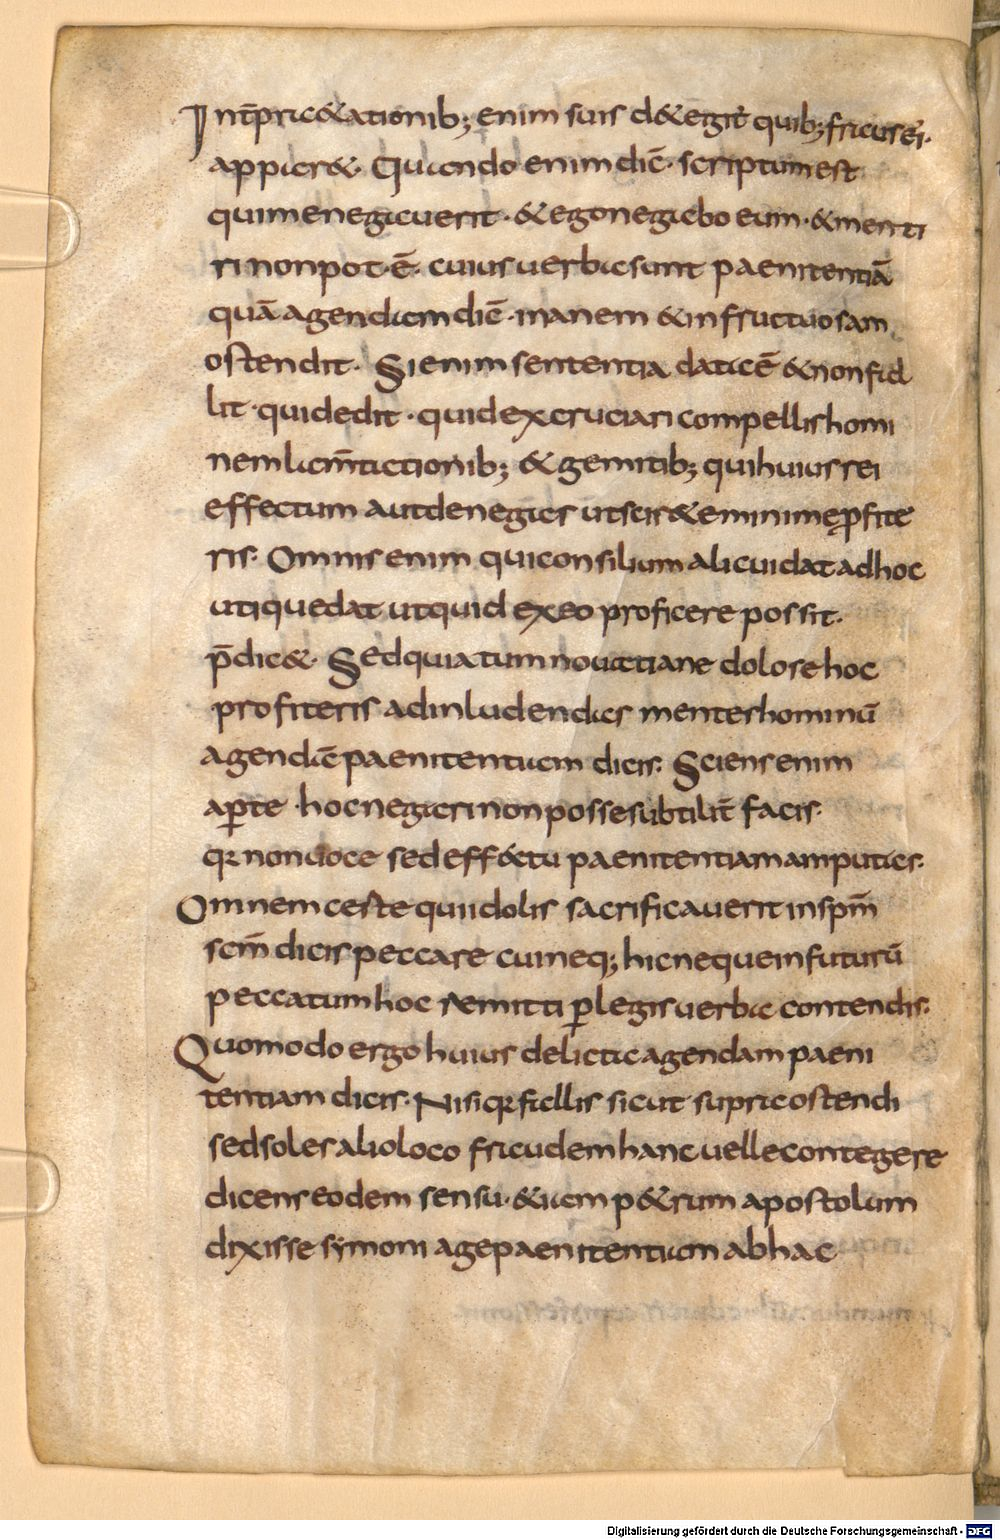 Int̄pr&ationib; enim suis d&egit̄ quib; fraus ei᷒·
appar&· Quando enim dic̄· scriptum est
qui me negauerit· & ego negabo eum· & menti
ri non pot·ē· cuius uerba sunt paenitentiā
quā agendam dic̄· inanem & infructuosam
ostendit· Si enim sententia data ē & non fal
lit· qui dedit· quid excruciari compellis homi
nem lam̄tationib; & gemitib; qui huius rei
effectum aut denegas ut scis & eminime ꝓfite
ris· Omnis enim qui consilium alicui dat ad hoc
utique dat ut quid ex eo proficere possit·
p̄dic&· Sed quia tu m nouatiane dolose hoc
profiteris ad inludendas mentes hominū
agendā paenitentiam dicis· Sciens enim
aꝑte· hoc negari non posse subtilit̄ facis·
qꝛ non uoce sed eff&tu paenitentiam amputas·
Omnem certe qui idolis sacrificauerit in spm̄
scm̄ dicis peccare cui neq; hic neque in futurū
peccatum hoc remitti ꝑ legis uerba contendis·
Quomodo ergo huius delicta agendam paeni
tentiam dicis· Nisi qꝛ fallis sicut supra ostendi
sed soles alio loco fraudem hanc uelle contegere
dicens eodem sensu· &iam p&rum apostolum
dixisse symoni age paenitentiam ab hac
Digitalisierung gefördert durch die Deutsche Forschungsgemeinschaft - DFG